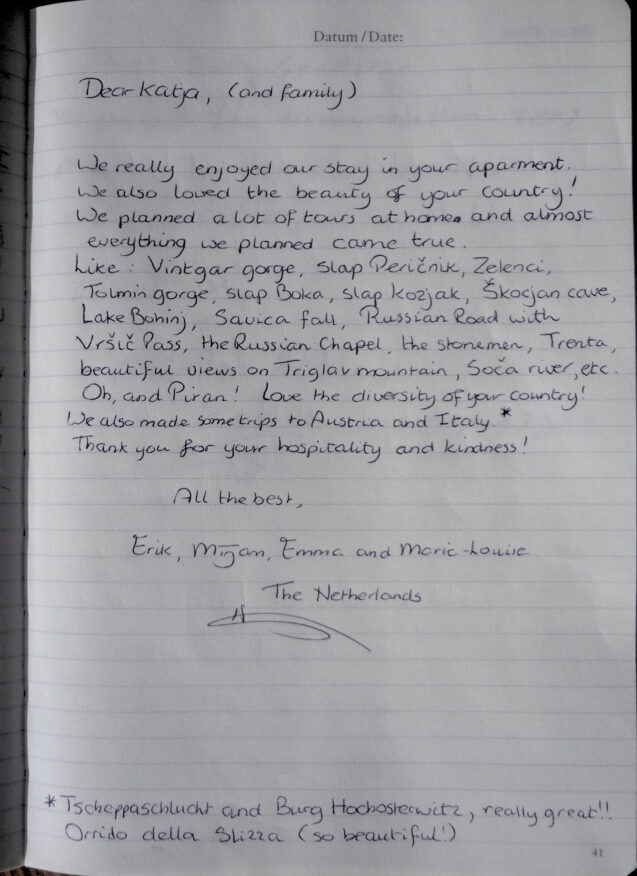 Datum / Date:
Dear Katja, (and family)
We really enjoyed our stay in your aparment.
We also loved the beauty of your country!
We planned a lot of tours at home and almost
everything we planned came true.
Like: Vintgar gorge, slap Peričnik, Zelenci,
Tolmin gorge, slap Boka, slap Kozjak, Škocjan cave,
Lake Bohinj, Savica fall, Russian Road with
Vršič Pass, the Russian Chapel, the stonemen, Trenta,
beautiful views on Triglav mountain, Soča river, etc.
Oh, and Piran! Love the diversity of your country!
We also made some trips to Austria and Italy.*
Thank you for your hospitality and kindness!
All the best,
Erik, Mirjam, Emma and Marie-Louise
The Netherlands
*Tscheppaschlucht and Burg Hochosterwitz, really great!!
Orrido della Slizza (so beautiful!)
41